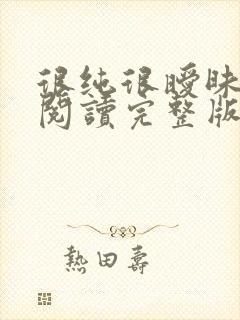 很純很曖昧
閱讀完整版
熱田壽